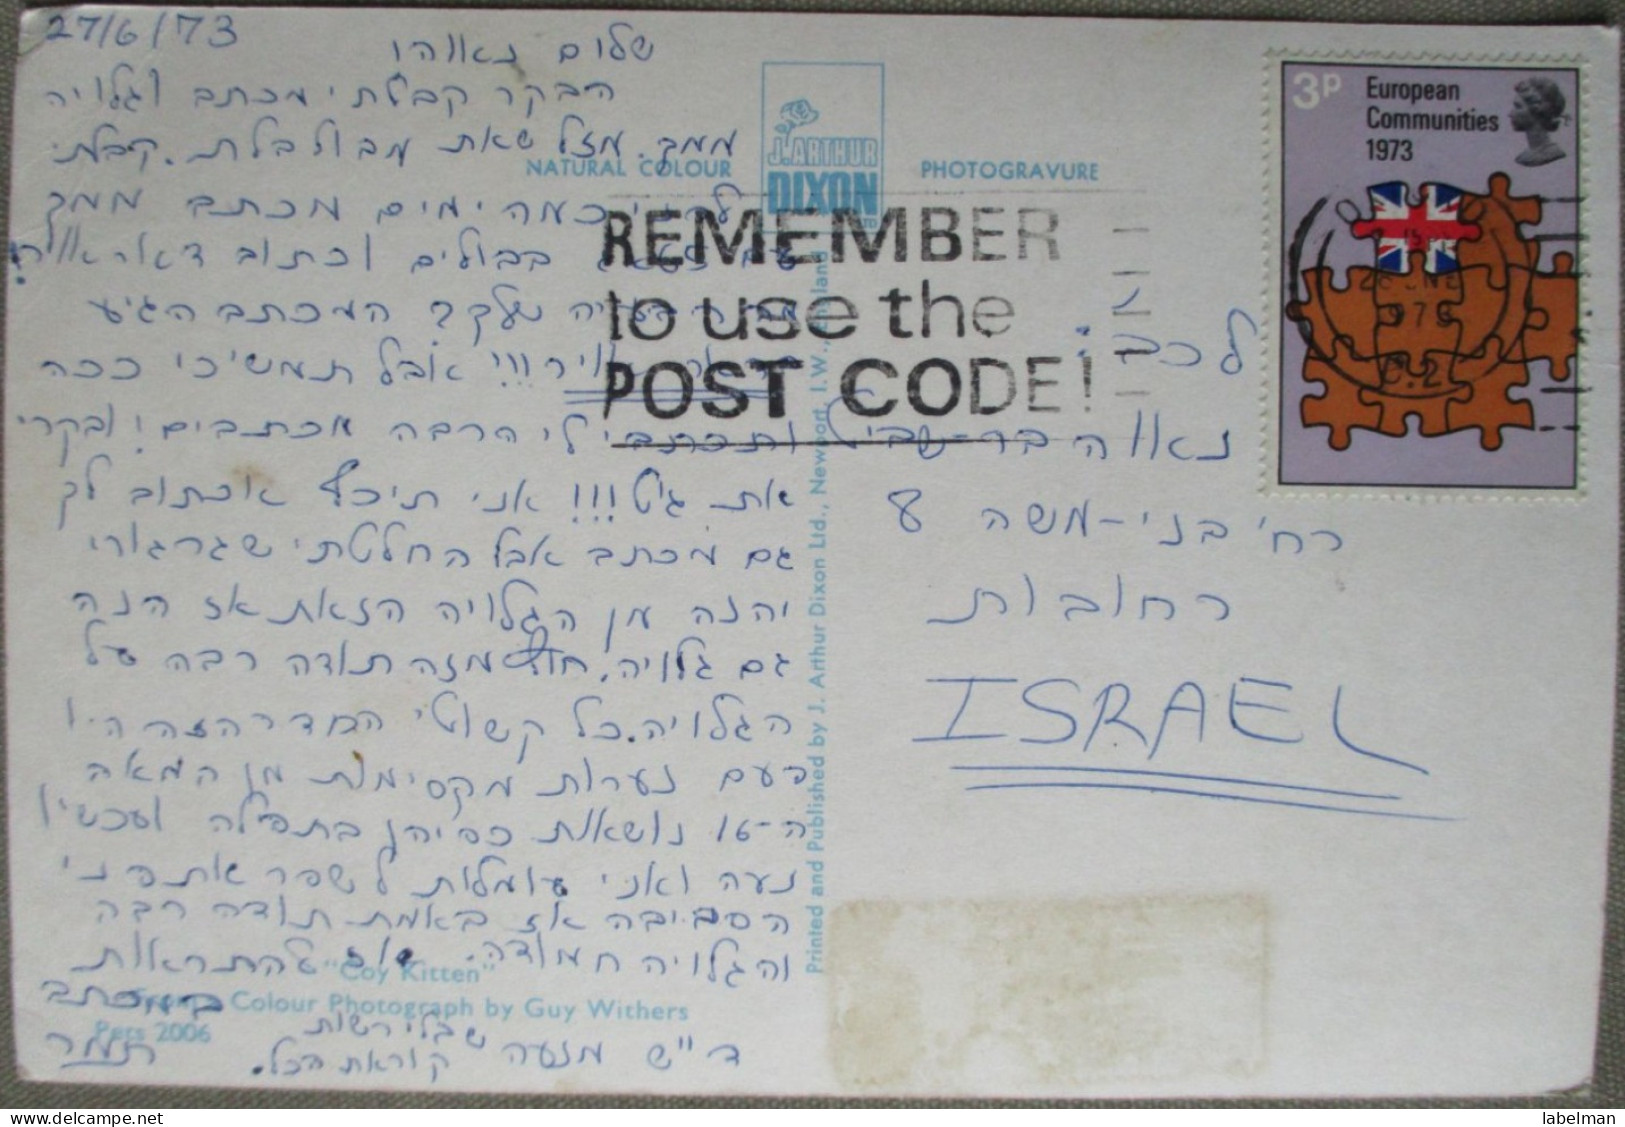 27/6/73
שלום נאווהו
הבקר קבלתי מכתב וגלויה
ממך. מזל שאת מבולבלת. קבלתי
לפני כמה ימים מכתב ממך
בבולים וכתוב דאר אוויר!
המכתב הגיע
אוויר!!! אבל תמשיכי ככה
ותכתבי לי הרבה מכתבים! ובקרי
את גיטי!!! אני תיכף אכתוב לך
גם מכתב אבל החלטתי שגרגורי
יהנה מן הגלויה הזאת אז הנה
גם גלויה. חוץ מזה תודה רבה על
הגלויה. כל קשוטי החדר הזה היו
פעם נערות מקסימות מן המאה
ה-16 נושאות כפיהן בתפילה ועכשיו
נעה ואני עומלות לשפר את פני
הסביבה אז באמת תודה רבה
והגלויה חמודה. אז להתראות
במכתב
תמר
ד"ש מנעה
שבלי רשות
קוראת הכל.
NATURAL COLOUR
J. ARTHUR
DIXON
PHOTOGRAVURE
REMEMBER
to use the
POST CODE!
3p
European
Communities
1973
לכב'
נאווה בר-שביל
רח' בני-משה 8
רחובות
ISRAEL
Printed and Published by J. Arthur Dixon Ltd., Newport, I.W., England
"Coy Kitten"
Colour Photograph by Guy Withers
Pets 2006
labelman